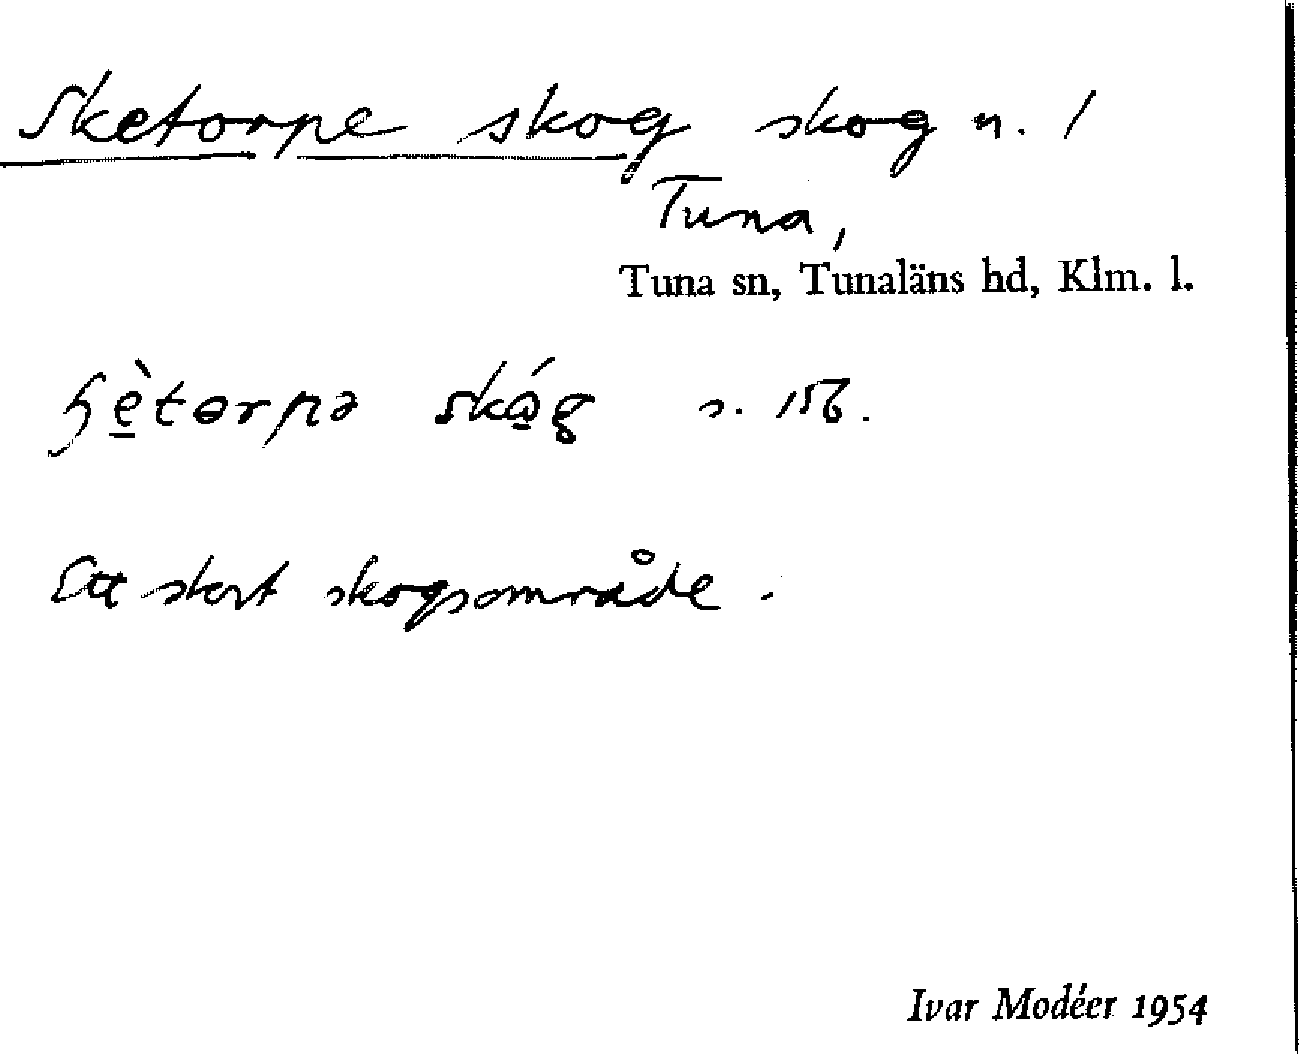 Sketorpe skog skog n. 1
Tuna,
Tuna sn, Tunaläns hd, Klm. l.
ɧè̠tɵrpə skó̠g
Ett stort skogsområde.
Ivar Modéer 1954